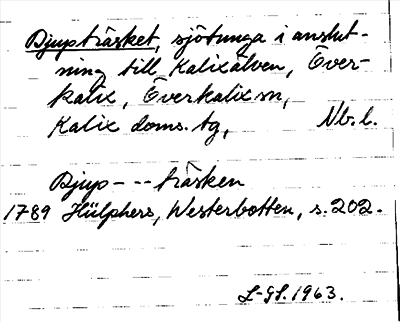 Djupträsket, sjötunga i anslut-
ning till Kalixälven, Över-
kalix, Överkalix sn,
Kalix doms. tg, Nb. l.
Djup--- träsken
1789 Hülphers, Westerbotten, s. 202.
L-GS. 1963.